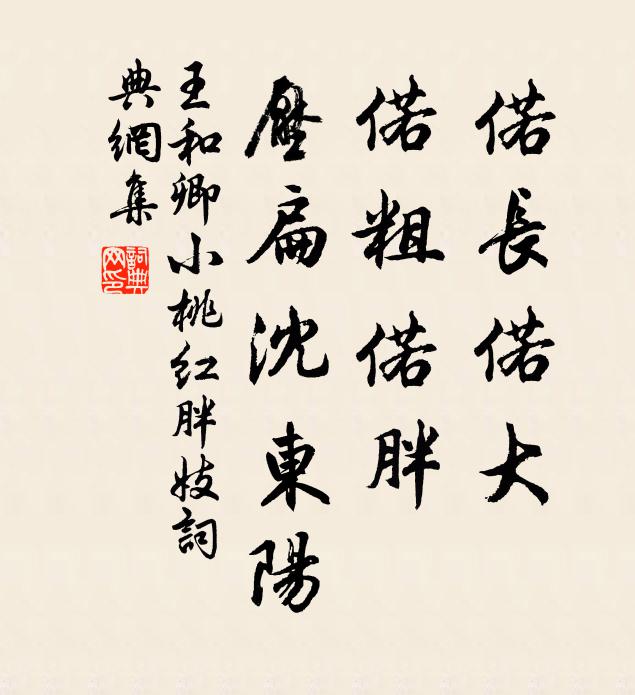 偌長偌大
偌粗偌胖
壓扁沈東陽
王和卿小桃紅胖妓詞
典網集
詞典網印